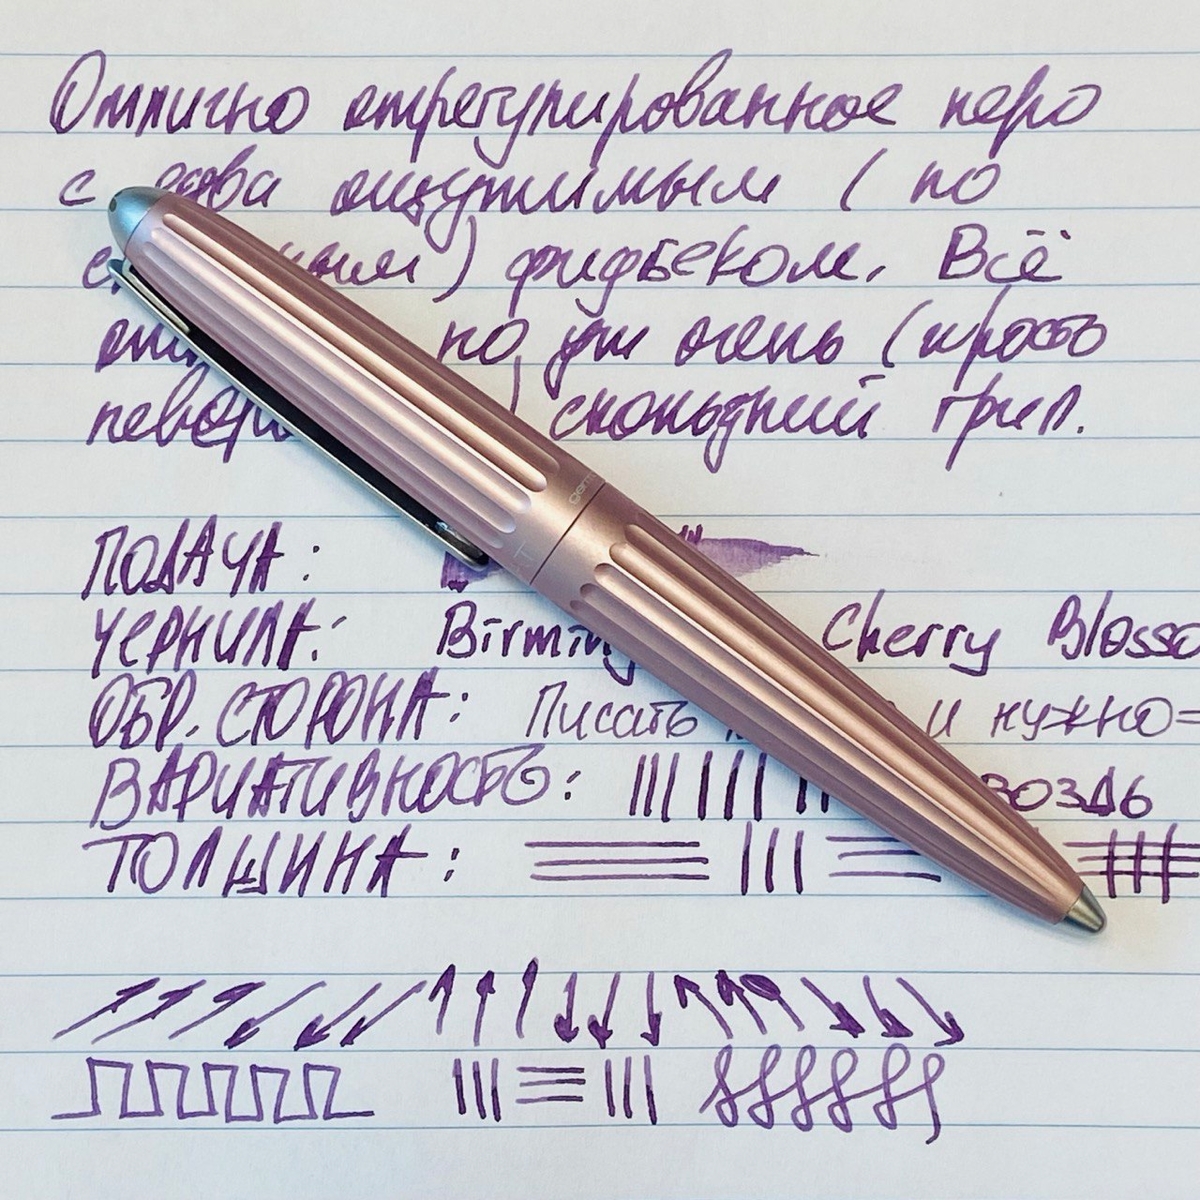 Отлично отрегулированное перо
с едва ощутимым (по
фидбеком. Всё
но уж очень (просто
скользкий грип.
ПОДАЧА:
ЧЕРНИЛА: Cherry
ОБР. СТОРОНА: Писать и нужно =
ВАРИАТИВНОСТЬ:
ТОЛЩИНА: